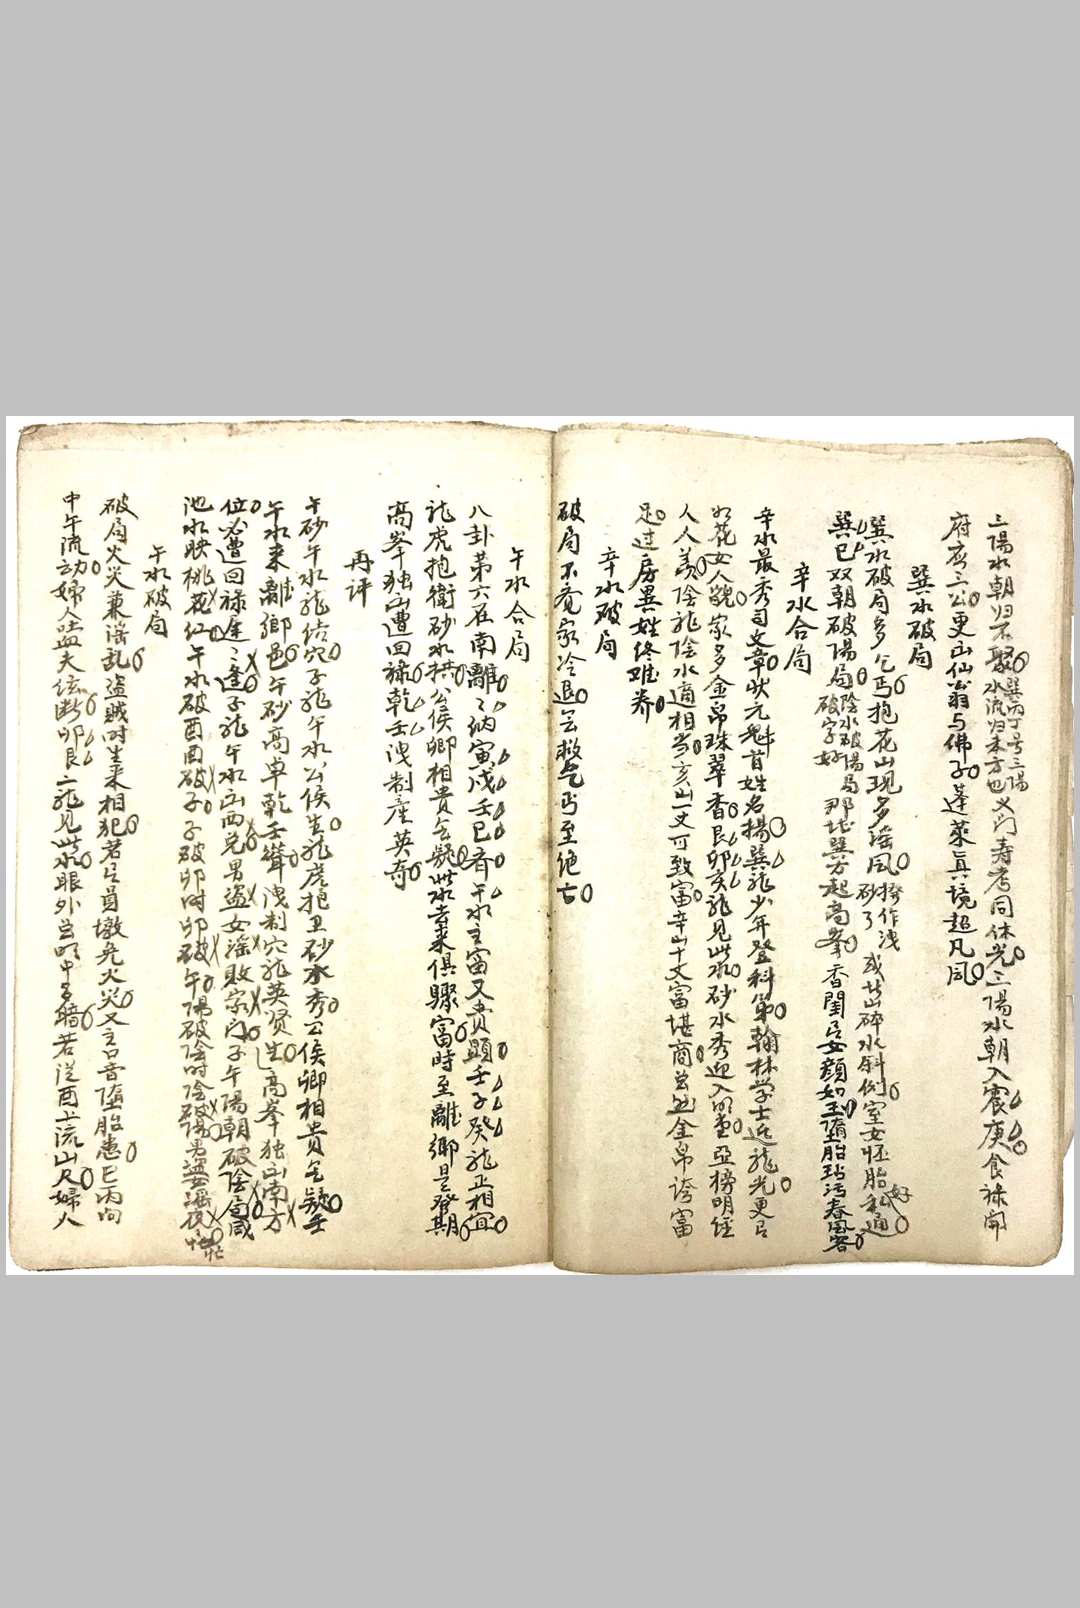 三陽水朝归不聚 巽丙丁号三陽 水流归未方也 又门寿考同休光三陽水朝入震庚食禄闹
府应三公更出仙翁与佛子蓬莱真境超凡風
巽水破局
巽水破局多乞丐抱花山现多謠風 砂了 或此山碎水斜倒室女怀胎私通 好
巽巳双朝破陽局 陰水破陽局 破字好 那堪巽方起高峯香闺女顔如玉墮胎玷污春風客
辛水合局
辛水最秀司文章状元魁首姓名揚巽龙少年登科第翰林学士近龙光更
如花女人貌家多金帛珠翠香艮卯亥龙見此水砂水秀迎入明堂亞榜明经
人人羡陰龙陰水適相当亥山一丈可致富辛山十丈富堪商金帛誇富
足过房異姓终难养
辛水破局
破局不竟家冷退无救乞丐至绝亡
午水合局
八卦第六在南離〻纳寅戌壬巳看午水主富又贵顕壬子癸龙正相宜
龙虎抱衛砂水拱公侯卿相貴无疑此水去来俱驟富時至離鄉是發期
高峯独出遭回禄乾壬洩制産英奇
再评
午砂午水龙结穴子龙午水公侯生龙虎抱卫砂水秀公侯卿相貴无疑壬
午水来離鄉邑午砂高卓乾壬聳洩制穴龙英贤生高峯独出南方
位必遭回禄逢〻逢子龙午水出西兑男盗女淫敗家门子午陽朝破陰局咸
池水映桃花红午水破酉酉破子子破卯时卯破午陽破陰时陰破陽男婆淫夜〻忙
午水破局
破局火災兼谣乱盗贼时生来相犯若墩兑火災又主口音墮胎患巳丙向
中午流动婦人吐血夫缘断卯艮二龙见此水眼外当明中多暗若从酉上流出尺婦人